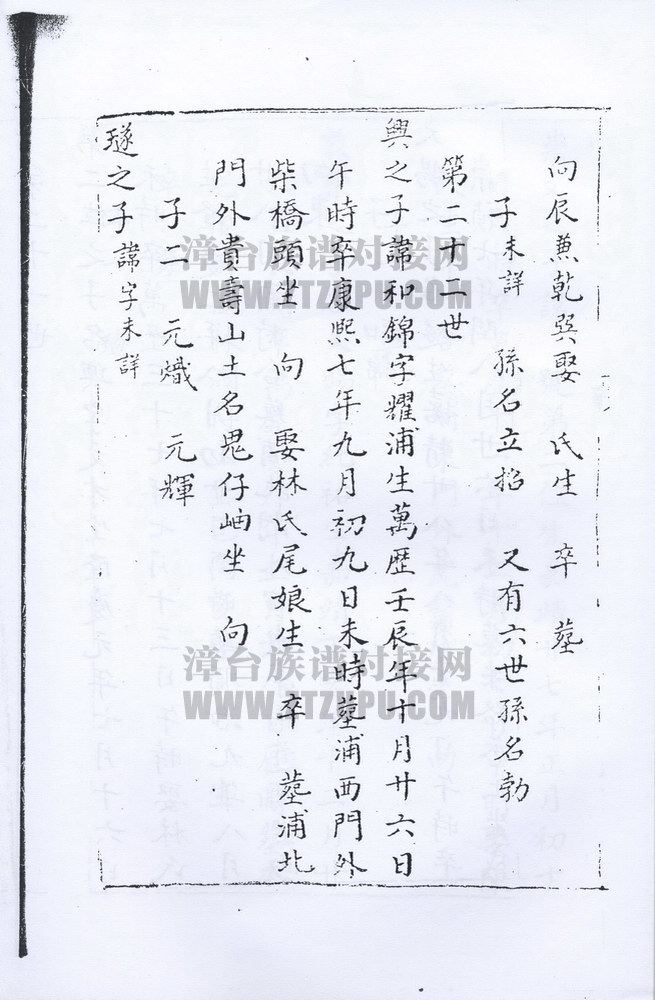 向辰兼乾巽娶 氏生 卒 墓
子未詳 孫名立招 又有六世孫名勃
第二十二世
興之子諱和錦字耀浦生萬歷壬辰年十月廿六日
午時卒康熙七年九月初九日未時墓浦西門外
柴橋頭坐 向 娶林氏尾娘生 卒 墓浦北
門外貴壽山土名鬼仔岫坐 向
子二 元熾 元輝
璲之子諱字未詳
漳台族谱对接网
WWW.ZTZUPU.COM
漳台族谱对接网
WWW.ZTZUPU.COM